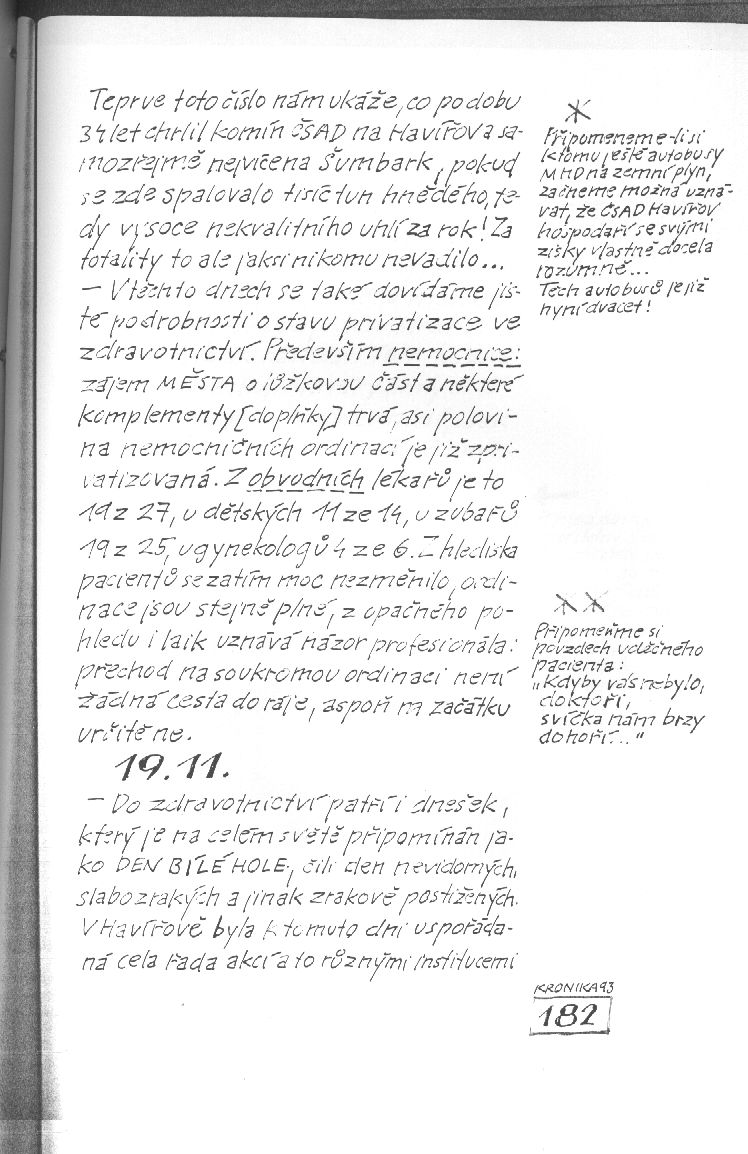 Teprve toto číslo nám ukáže, co po dobu
34 let chrlil komín ČSAD na Havířov a sa-
mozřejmě nejvíce na Šumbark, pokud
se zde spalovalo tisíc tun hnědého, te-
dy vysoce nekvalitního uhlí za rok! Za
totality to ale jaksi nikomu nevadilo...
– V těchto dnech se také dovídáme jis-
té podrobnosti o stavu privatizace ve
zdravotnictví. Především nemocnice:
zájem MĚSTA o lůžkovou část a některé
komplementy [doplňky] trvá, asi polovi-
na nemocničních ordinací je již zpri-
vatizovaná. Z obvodních lékařů je to
19 z 27, u dětských 11 ze 14, u zubařů
19 z 25, u gynekologů 4 ze 6. Z hlediska
pacientů se zatím moc nezměnilo, ordi-
nace jsou stejně plné, z opačného po-
hledu i laik uznává názor profesionála:
přechod na soukromou ordinaci není
žádná cesta do ráje, aspoň na začátku
určitě ne.
19.11.
– Do zdravotnictví patří i dnešek,
který je na celém světě připomínán ja-
ko DEN BÍLÉ HOLE, čili den nevidomých,
slabozrakých a jinak zrakově postižených.
V Havířově byla k tomuto dni uspořáda-
ná celá řada akcí a to různými institucemi
*
Připomeneme-li si
k tomu ještě autobusy
MHD na zemní plyn,
začneme možná uzná-
vat, že ČSAD Havířov
hospodaří se svými
zisky vlastně docela
rozumně...
Těch autobusů je již
nyní dvacet!
* *
Připomeňme si
povzdech vděčného
pacienta:
"Kdyby vás nebylo,
doktoři,
svíčka nám brzy
dohoří..."
KRONIKA 93
182